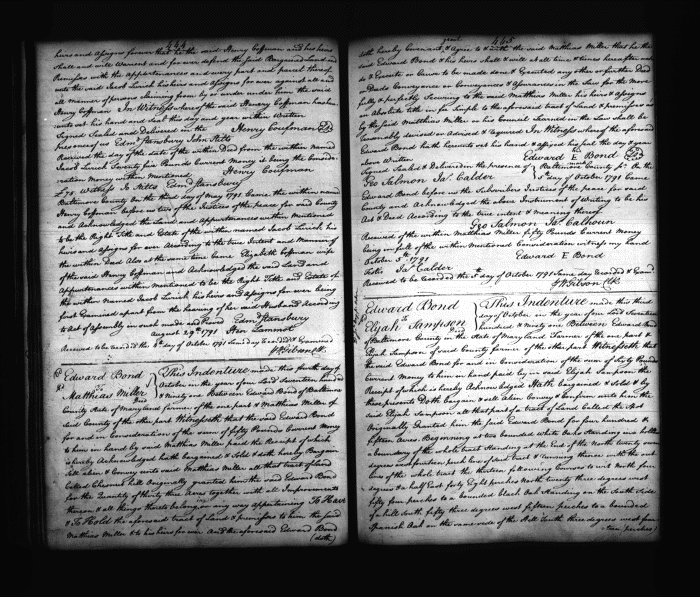 444
heirs and assigns forever that he the said Henry Coffman and his heirs
shall and will Warrant and for ever defend the said Bargained Land and
Premises with the appurtenances and every part and parcel thereof
unto the said Jacob his heirs and assigns for ever against all and
all manner of persons claiming by or under him the said
Henry Coffman In Witness whereof the said Henry Coffman has hereunto
unto set his hand and Seal this day and year within Written
Signed Sealed and Delivered in the Henry Coufman
presence of us Edmd Stansbury John Stitts
Received the day of the date of the within Deed from the within Named
Jacob Seventy five Pounds Current Money it being the Consideration
Money within Mentioned Henry Coufman
£75 Witness Jo Stitts Edmd Stansbury
Baltimore County On the third day of May 1791 Came the within named
Henry Coffman before us two of the Justices of the peace for said County
and Acknowledged the Land and Appurtenances within Mentioned
to be the Right Title and Estate of the within named Jacob his
heirs and assigns for ever According to the true Intent and Meaning of
the within Deed Also at the same time Came Elizabeth Coffman wife
of the said Henry Coffman and Acknowledged the said Land and
Appurtenances within mentioned to be the Right Title and Estate of
the within Named Jacob his heirs and assigns for ever being
first Examined apart from the hearing of her said Husband According
to Act of Assembly in such made and Provided Edmd Stansbury
August 29th 1791 Hen Lammot
Received to be recorded the 5th day of Octbr 1791 Same day Recorded & Examined
Wm Gibson Clk
Edward Bond This Indenture made this fourth day of
to October in the year of our Lord Seventeen hundred
Matthias Miller & Ninety one Between Edward Bond of Baltimore
County State of Maryland farmer of the one part & Matthias Miller of
said County of the other part Witnesseth that the said Edward Bond
for and in Consideration of the sum of fifty Pounds Current Money
to him in hand by said Matthias Miller paid the Receipt of which
is hereby Acknowledged hath bargained & Sold & doth hereby Bargain
Sell alien & Convey unto said Matthias Miller all that tract of Land
Called Chesnut hill Originally granted him the said Edward Bond
for the Quantity of thirty three Acres together with all Improvements
thereon & all things thereto belonging or any way appertaining To Have
& To Hold the aforesaid tract of Land & premises to him the said
Matthias Miller & to his heirs for ever And the aforesaid Edward Bond
(doth)
445
doth hereby Covenant & Agree to & with the said Matthias Miller that he the
said Edward Bond & his heirs shall & will at all time & times hereafter make
do & Execute or Cause to be made done & Executed any other or further Deed
or Deeds Conveyance or Conveyances & Assurances in the Law for the More
fully & perfectly Securing to the said Matthias Miller his heirs & Assigns
an Absolute title in fee Simple to the aforesaid tract of Land & premises as
by the said Matthias Miller or his Council Learned in the Law shall be
reasonably devised or Advised & required In Witness whereof the aforesaid
Edward Bond hath hereunto set his hand & affixed his seal the day & year
above Written Edward E Bond
Signed Sealed & Delivered in the presence of Baltimore County ss On the
Geo Salmon Jas Calder 5th day of October 1791 Came
Edward Bond before us the Subscribers Justices of the peace for said
County and Acknowledged the above Instrument of Writing to be his
Act & Deed According to the true intent & meaning thereof
Geo Salmon Jas Calhoun
Received of the within Matthias Miller fifty Pounds Current Money
being in full of the within Mentioned Consideration witness my hand
October 5th 1791 Edward E Bond
Teste Jas Calder
Received to be recorded the 5th day of October 1791 Same day recorded & Examd
Wm Gibson Clk
Edward Bond This Indenture made this third
to day of October in the year of our Lord Seventeen
Elijah Sampson hundred & Ninety one Between Edward Bond
of Baltimore County in the State of Maryland Farmer of the one part &
Elijah Sampson of said County farmer of the other part Witnesseth that
the said Edward Bond for and in Consideration of the sum of Sixty Pounds
Current Money to him in hand paid by said Elijah Sampson the
Receipt of which is hereby Acknowledged Hath bargained & Sold & by
these presents Doth bargain & sell alien Convey & Confirm unto him the
said Elijah Sampson all that part of a tract of Land Called the
Originally Granted him the said Edward Bond for four hundred &
fifteen Acres. Beginning at two bounded White Oaks Standing on
a boundary of the whole tract Standing at the End of the North twenty
degrees west perches line of said tract & running thence with the out
lines of the whole tract the thirteen following Courses to wit North four
degrees & a half East forty Eight perches North twenty three degrees west
fifty four perches to a bounded black Oak Standing on the South Side
of a hill South fifty three degrees west fifteen perches to a bounded
Spanish Oak on the same side of the Hill South three degrees west four
(teen perches)